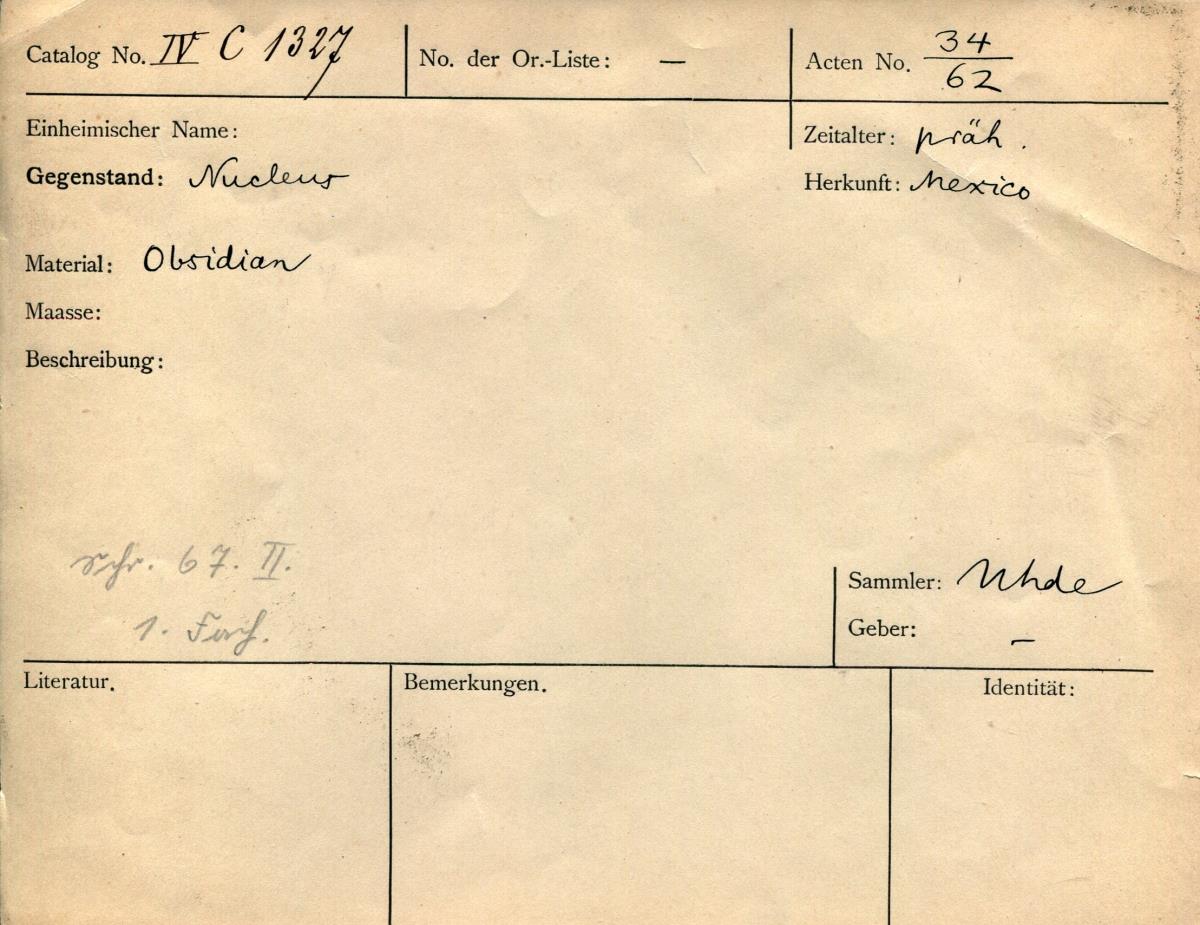 Catalog No. IV C 1327
No. der Or.-Liste: —
Acten No. 34/62
Einheimischer Name:
Zeitalter: präh.
Gegenstand: Nucleus
Herkunft: Mexico
Material: Obsidian
Maasse:
Beschreibung:
Schr. 67. II.
1. Fach.
Sammler: Uhde
Geber: —
Literatur.
Bemerkungen.
Identität: